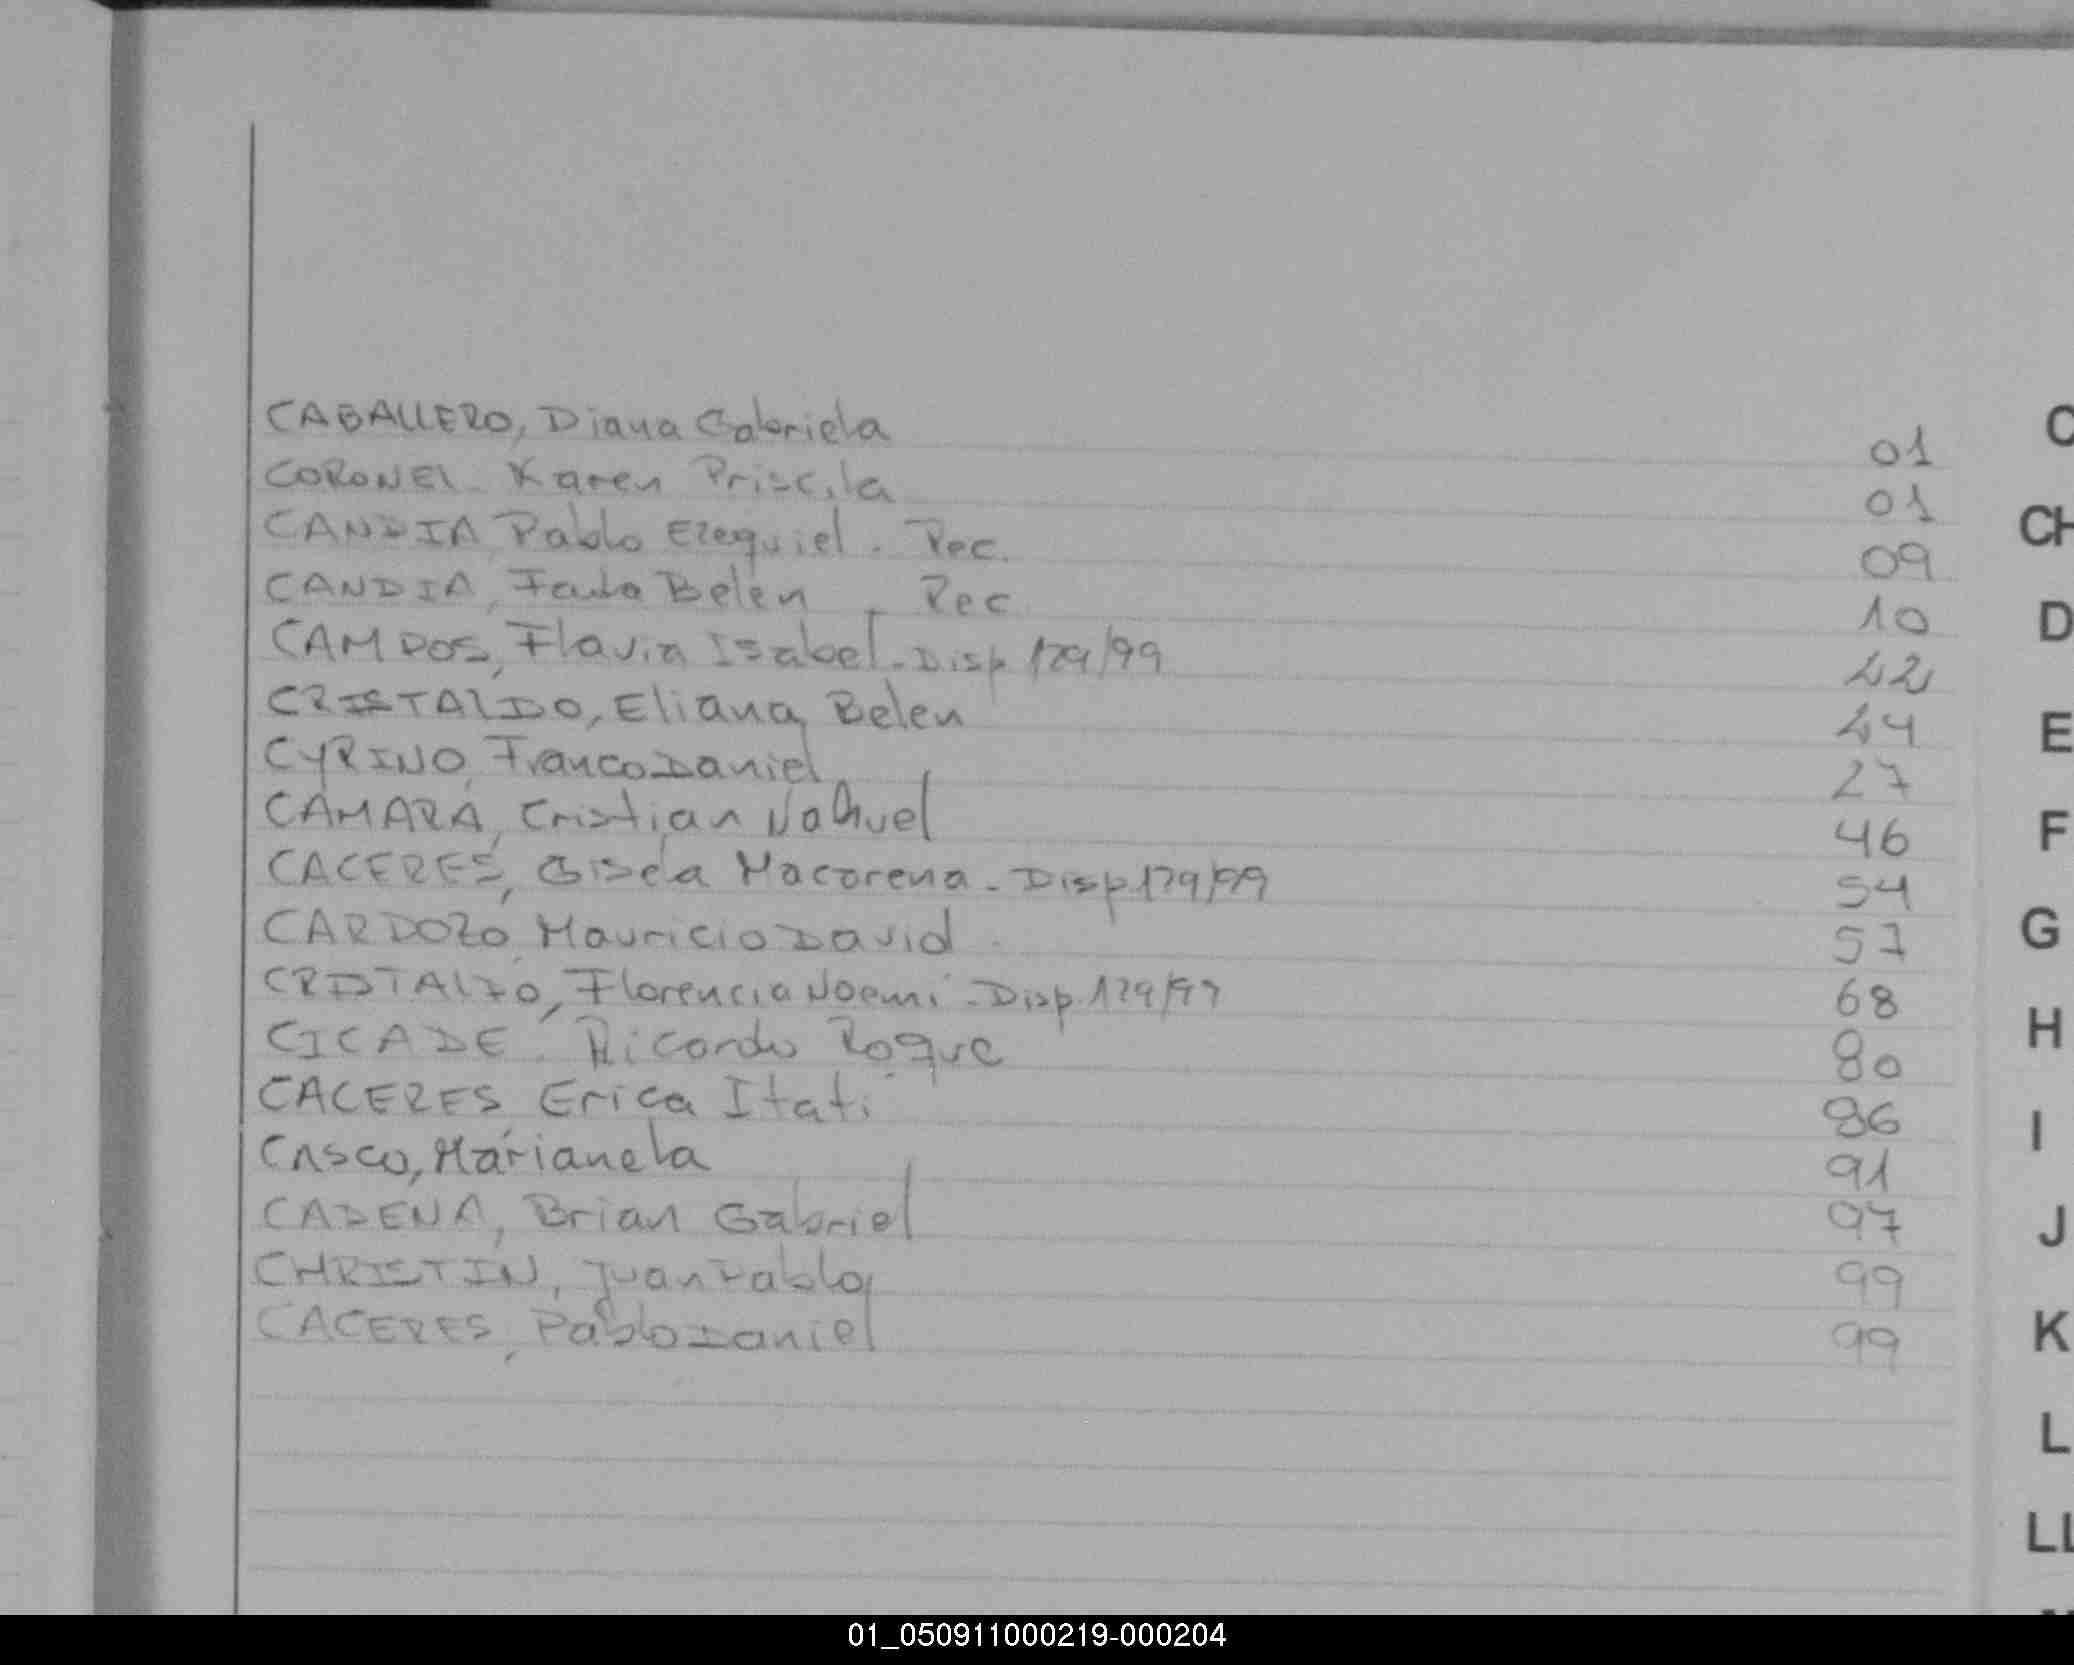 CABALLERO, Diana Gabriela 01
CORONEL Karen Priscila 01
CANDIA Pablo Ezequiel. Rec. 09
CANDIA, Belén. Rec 10
CAMPOS, Flavia Isabel - Disp 179/99 22
CRISTALDO, Eliana Belen 24
CYRINO, Franco Daniel 27
CAMARA, Cristian Nahuel 46
CACERES, Gisela Macarena - Disp 179/99 54
CARDOZO, Mauricio David. 57
CRISTALDO, Florencia Noemi - Disp. 179/99 68
CICADE. Ricardo Roque 80
CACERES, Erica Itati 86
CASCO, Marianela 91
CADENA, Brian Gabriel 97
CHRISTIN, Juan Pablo 99
CACERES, Pablo Daniel 99
C
CH
D
E
F
G
H
I
J
K
L
LL
01_050911000219-000204